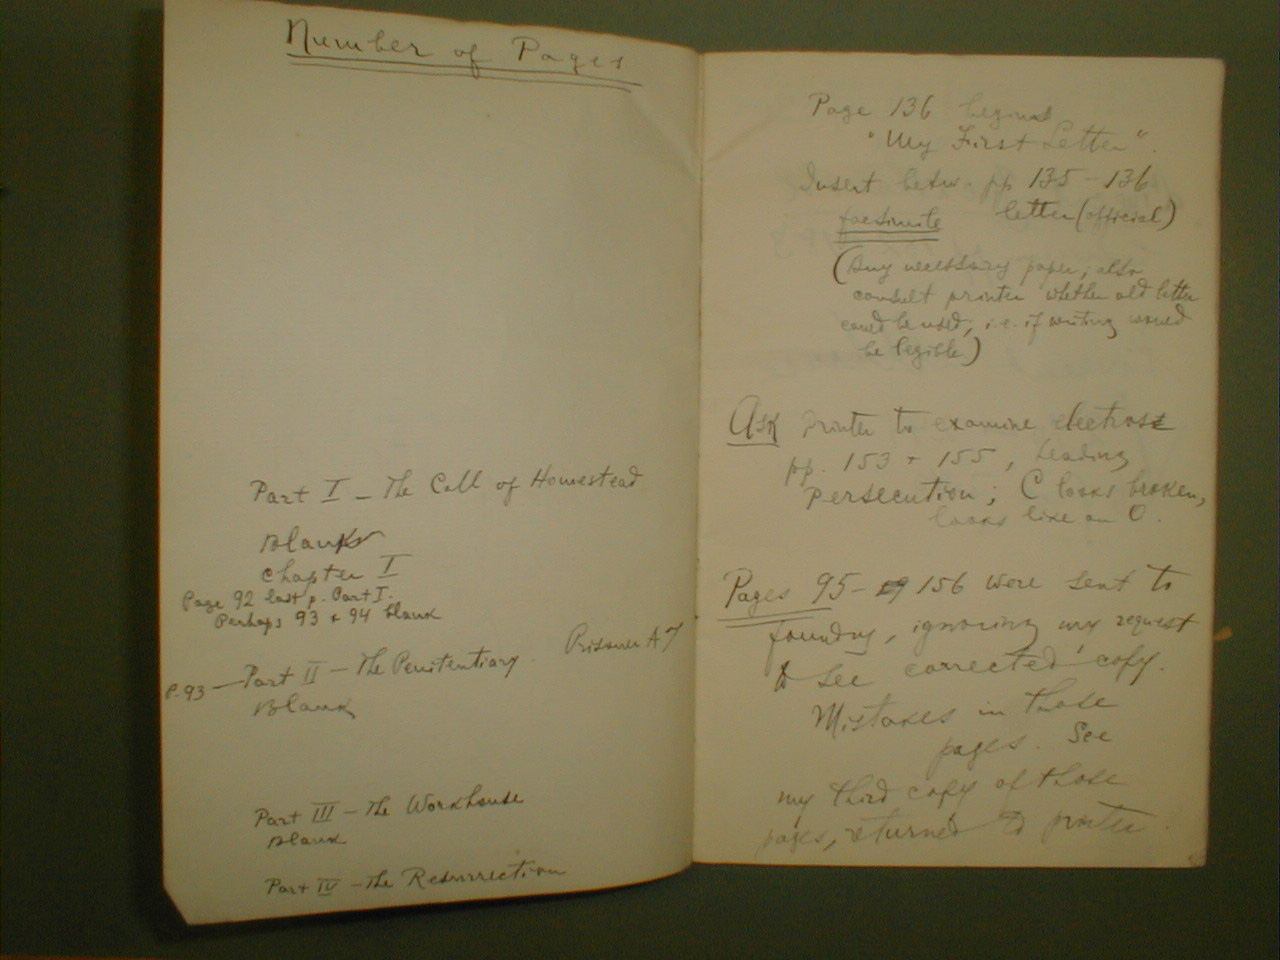 Number of Pages
Part I - The Call of Homestead
Blank
Chapter I
Page 92 last p. Part I.
Perhaps 93 + 94 blank
Prisoner A 7
P. 93 - Part II - The Penitentiary.
Blank
Part III - The Workhouse
Blank
Part IV - The Resurrection
Page 136 begins
"My First Letter".
Insert betw. pp 135 - 136
facsimile letter (official)
(Buy necessary paper; also
consult printer whether old letter
could be used, i.e. if writing would
be legible.)
Ask printer to examine electros
pp. 153 + 155, heading
Persecution; C looks broken,
looks like an O.
Pages 95 - 156 were sent to
foundry, ignoring my request
to see corrected copy.
Mistakes in those
pages. See
my third copy of those
pages, returned to printer